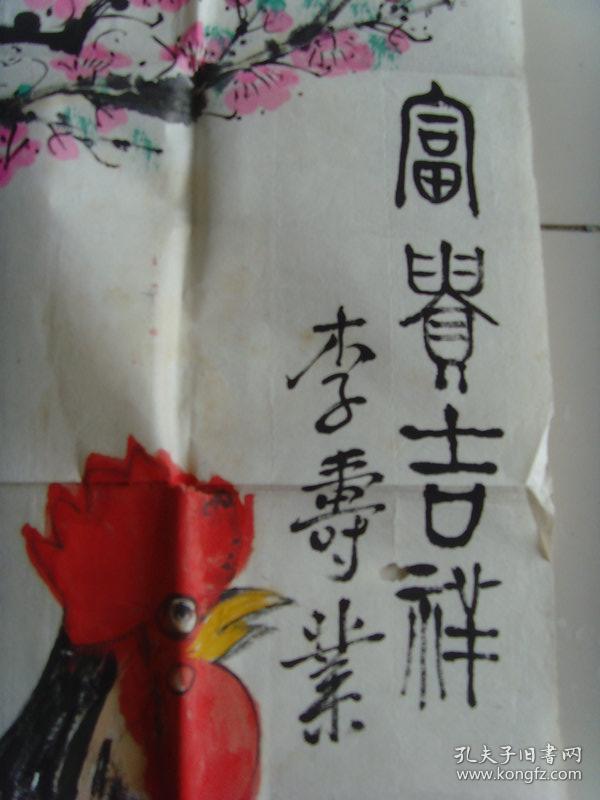 富貴吉祥
李壽業
孔夫子旧書网
www.kongfz.com